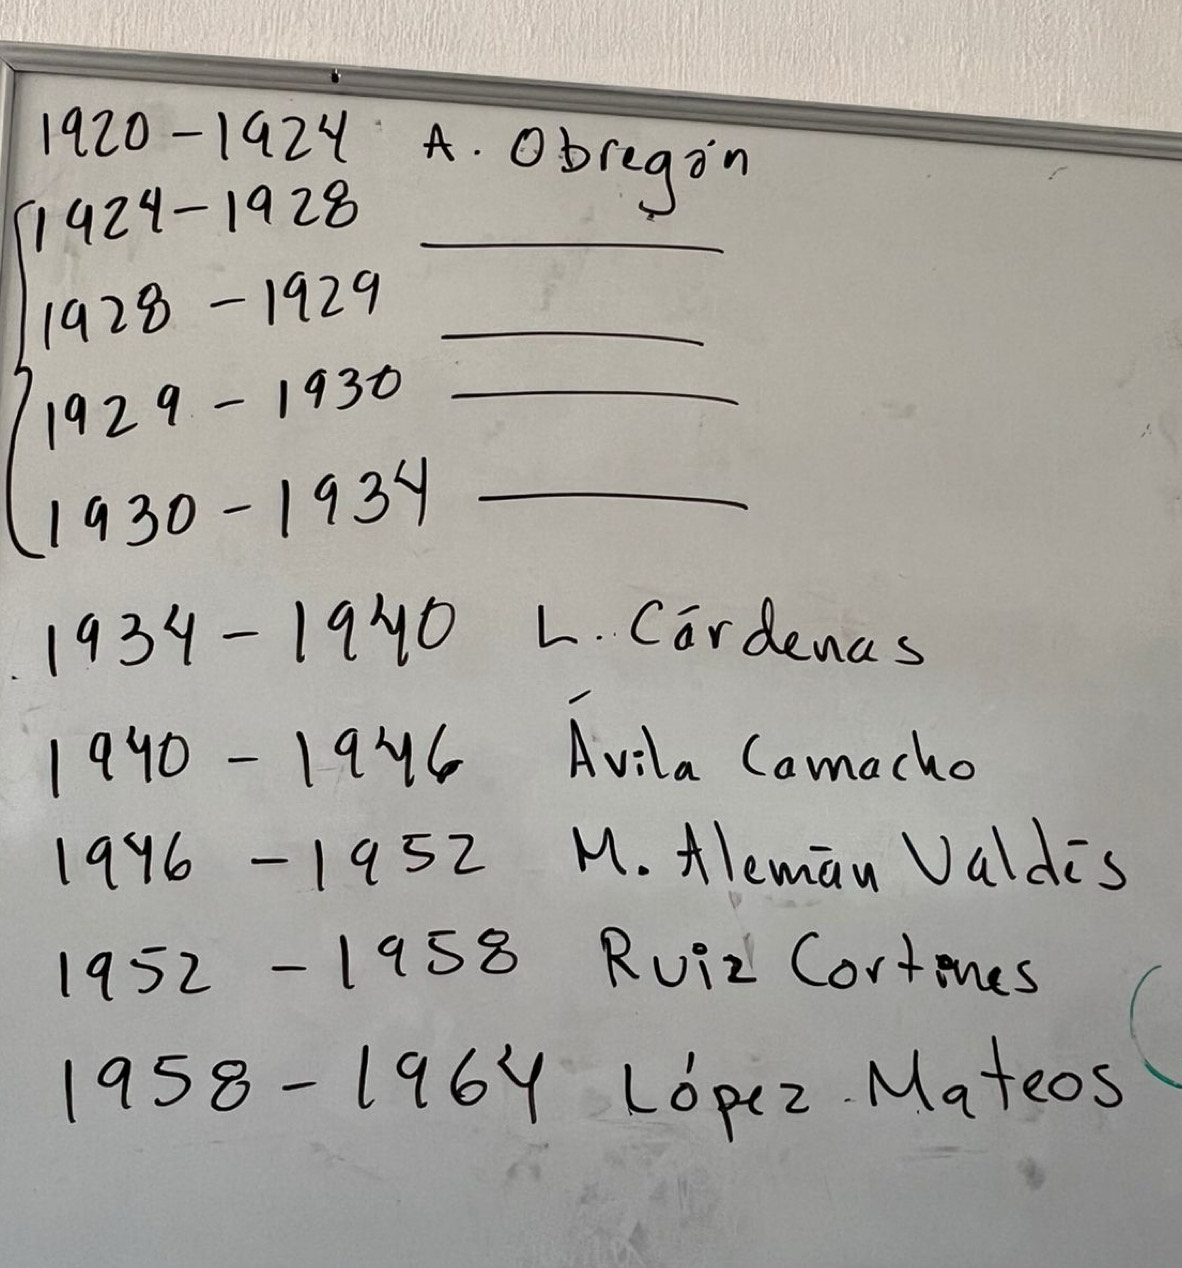 1920 - 1924 A. Obregón
1924 - 1928 ________
1928 - 1929 ________
1929 - 1930 ________
1930 - 1934 ________
1934 - 1940 L. Cárdenas
1940 - 1946 Ávila Camacho
1946 - 1952 M. Alemán Valdés
1952 - 1958 Ruiz Cortines
1958 - 1964 López Mateos